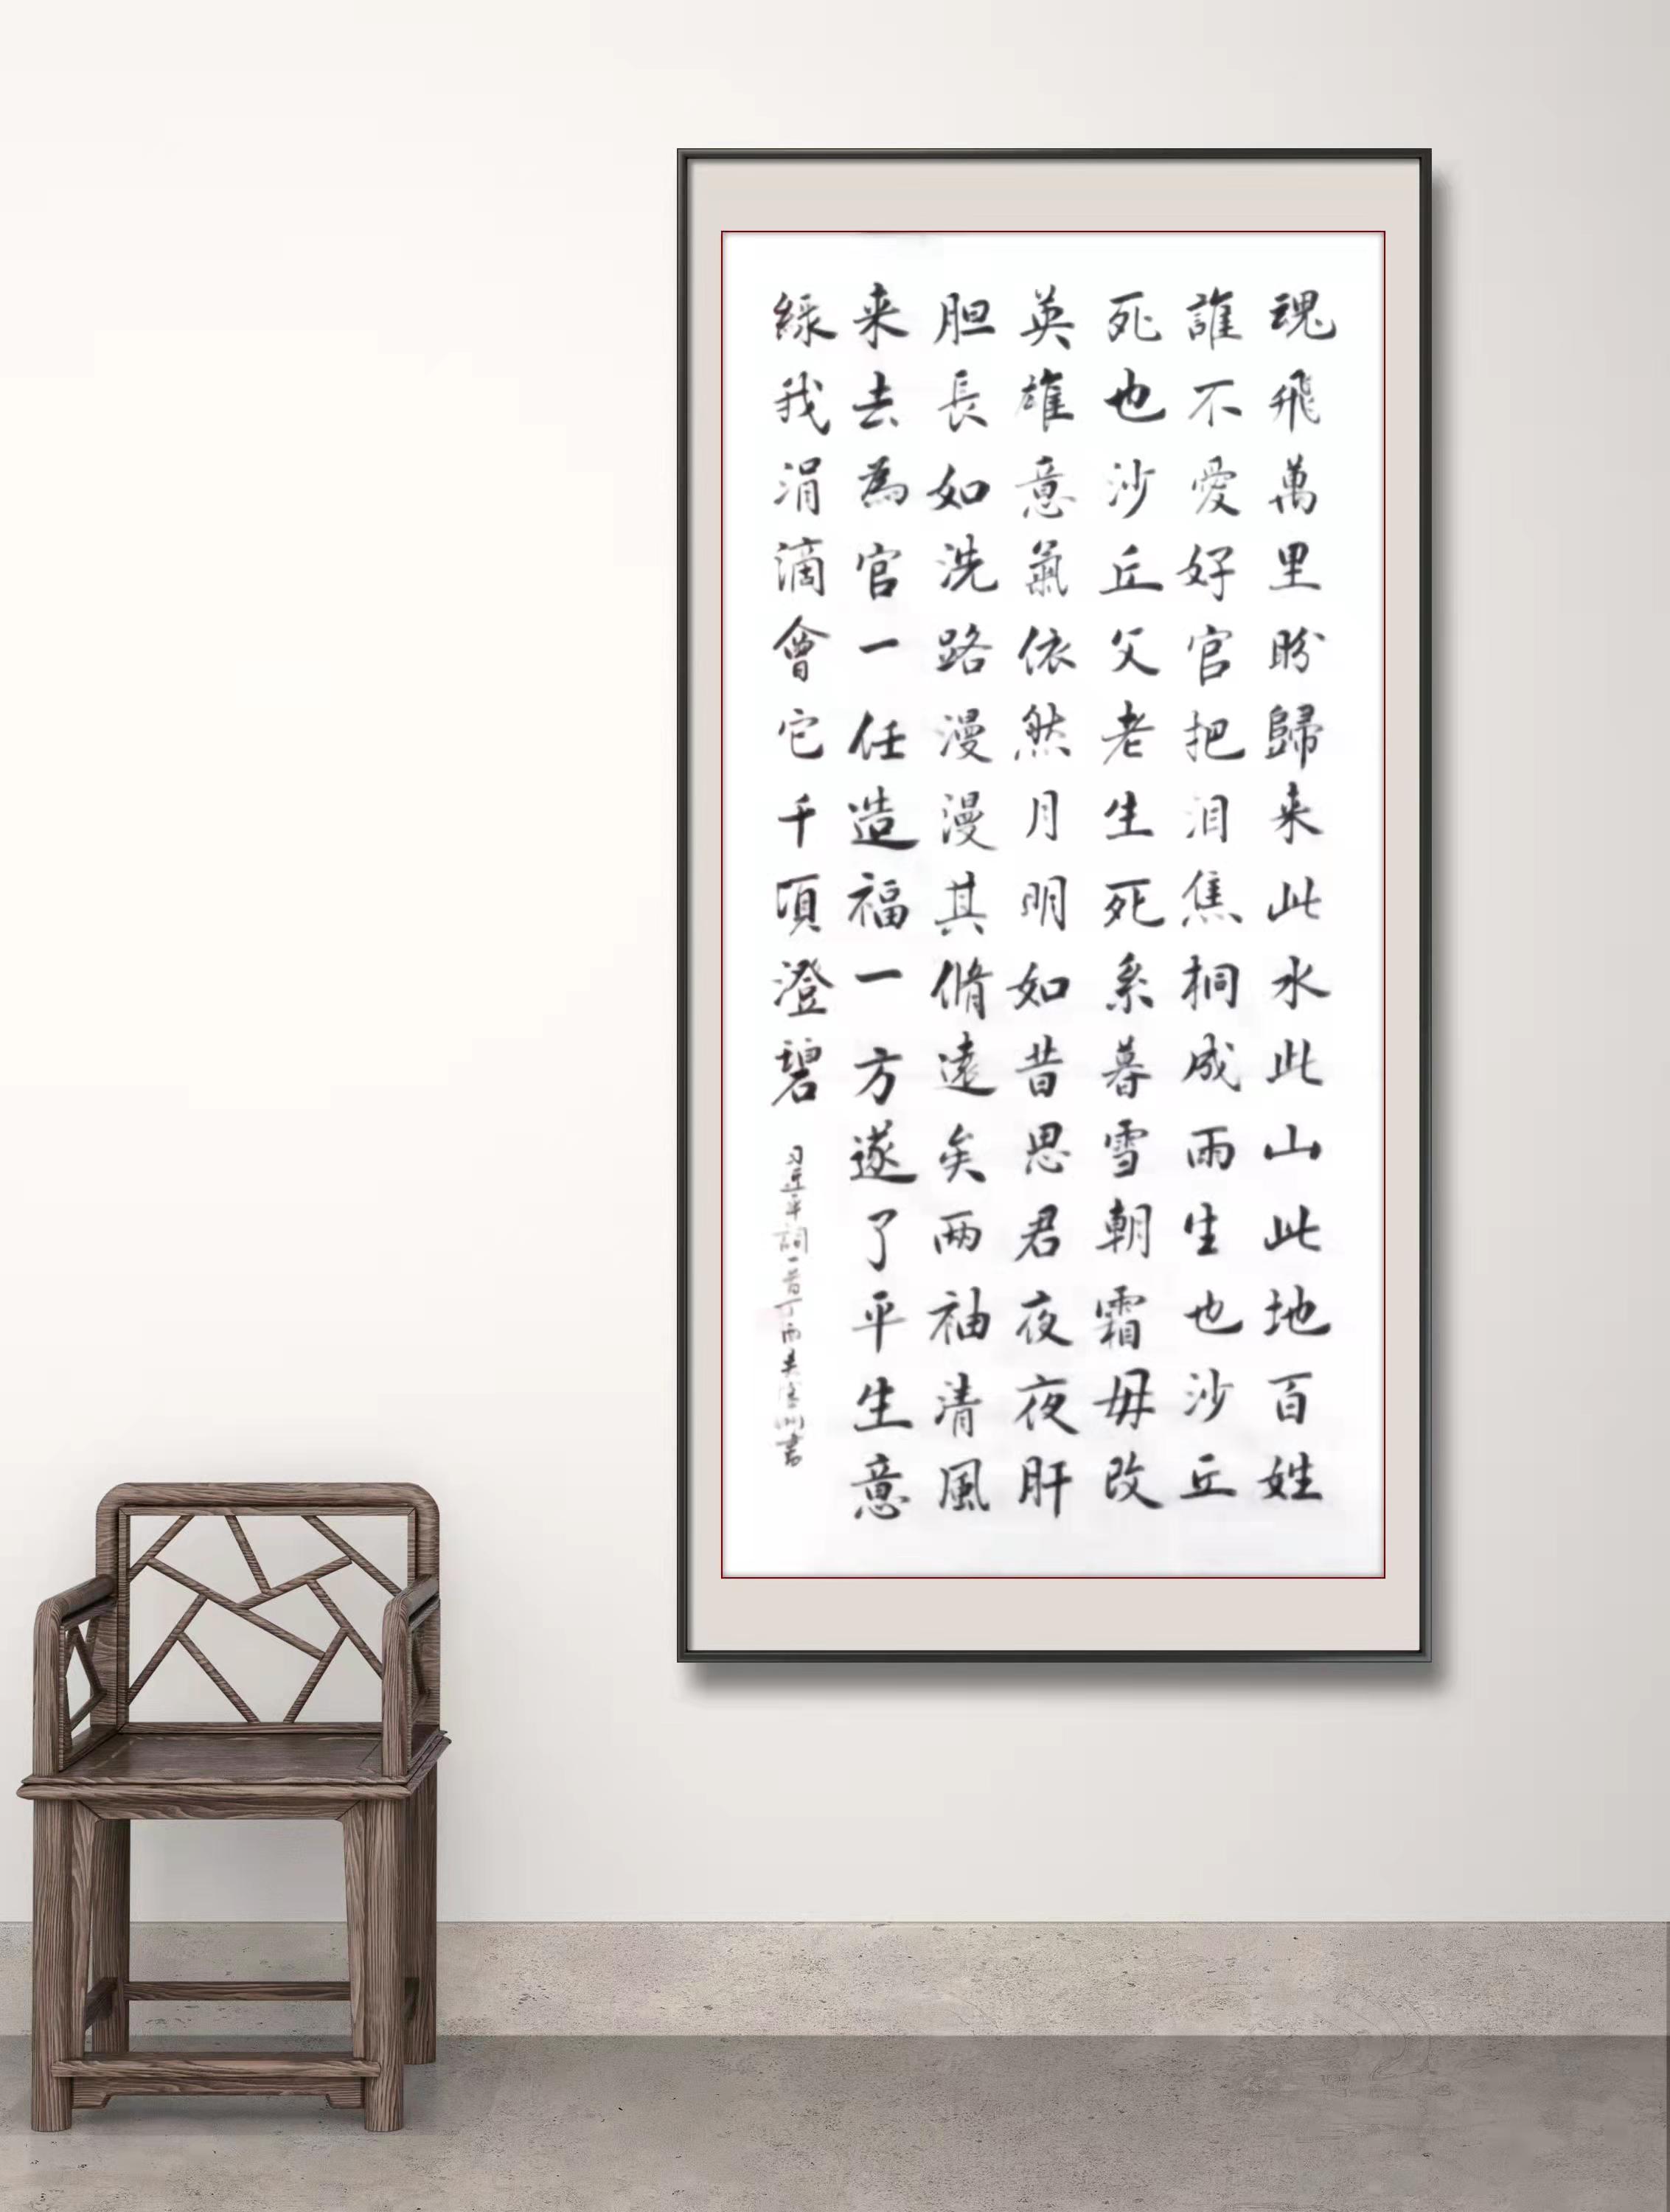 魂飛萬里盼歸来此水此山此地百姓
誰不愛好官把泪焦桐成雨生也沙丘
死也沙丘父老生死系暮雪朝霜毋改
英雄意氣依然月明如昔思君夜夜肝
胆長如洗路漫漫其脩遠矣两袖清風
来去為官一任造福一方遂了平生意
綠我涓滴會它千頃澄碧
习近平詞一首丁酉吴書